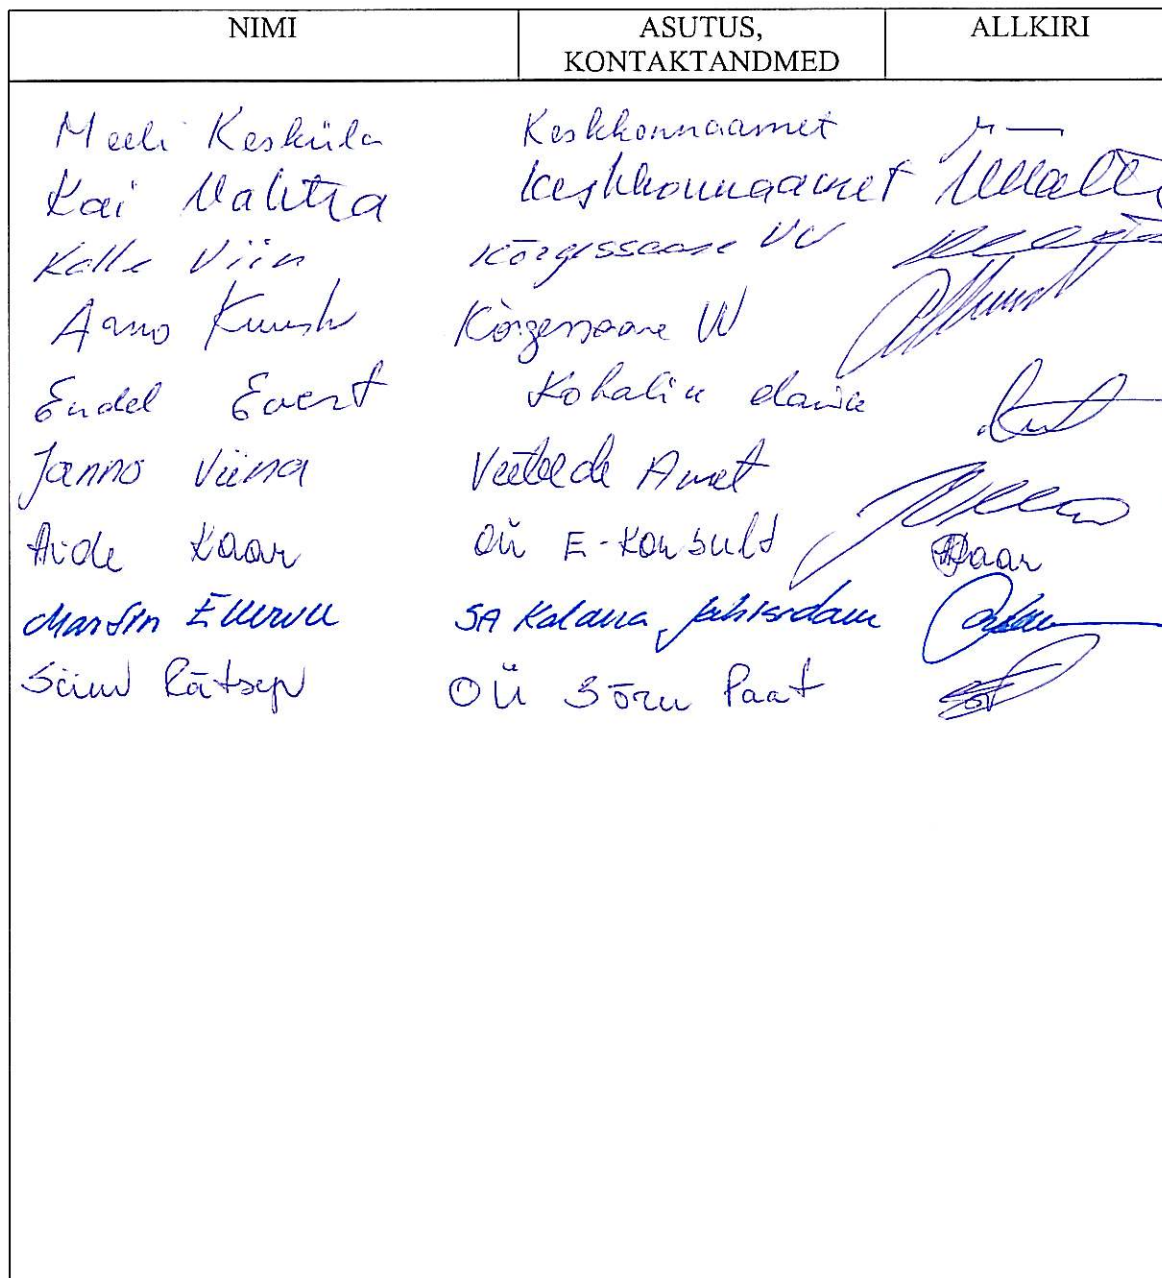 NIMI ASUTUS, KONTAKTANDMED ALLKIRI
Meeli Kesküla Keskkonnaamet
Kai Vahtra Keskkonnaamet
Kalle Viin Kõrgessaare VV
Arno Kuusk Kõrgessaare VV
Endel Evert Kohalik elanik
Janno Viina Veeteede Amet
Aide Kaar OÜ E-Konsult Kaar
Martin SA Kalana
Siim Rätsep OÜ Sõru Paat